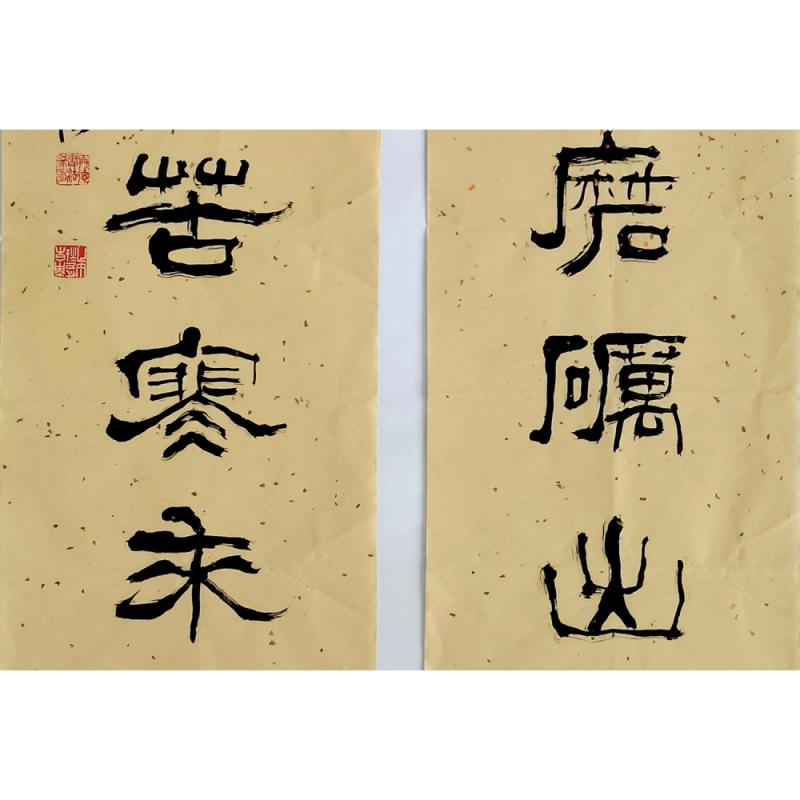 磨礪出
苦寒来